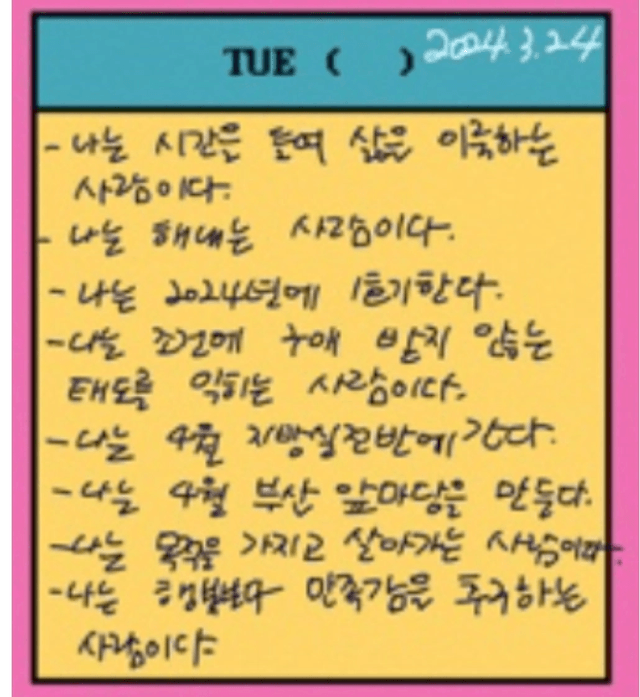 TUE (    ) 2024.3.24
- 나는 시간을 들여 삶을 이룩하는
사람이다.
- 나는 해내는 사람이다.
- 나는 2024년에 1호기한다.
- 나는 조건에 구애 받지 않는
태도를 익히는 사람이다.
- 나는 4월 지방실전반에 간다.
- 나는 4월 부산 앞마당을 만든다.
- 나는 목적을 가지고 살아가는 사람이다.
- 나는 행복보다 만족감을 추구하는
사람이다.